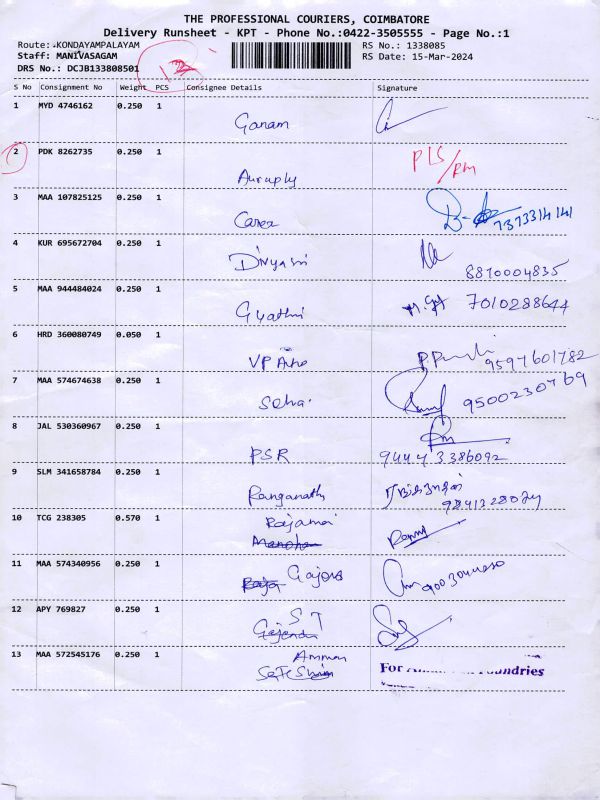 THE PROFESSIONAL COURIERS, COIMBATORE
Delivery Runsheet - KPT - Phone No.:0422-3505555 - Page No.:1
Route:-KONDAYAMPALAYAM RS No.: 1338085
Staff: MANIVASAGAM RS Date: 15-Mar-2024
DRS No.: DCJB133808501 12
S No Consignment No Weight PCS Consignee Details Signature
1 MYD 4746162 0.250 1 Ganam
2 PDK 8262735 0.250 1 PLS/RM
3 MAA 107825125 0.250 1 Carex 7373314141
4 KUR 695672704 0.250 1 Divyasri 8870004835
5 MAA 944484024 0.250 1 Gyathri 7010288644
6 HRD 360080749 0.050 1 VP Auto 9597601782
7 MAA 574674638 0.250 1 9500230769
8 JAL 530360967 0.250 1 PSR 9444386092
9 SLM 341658784 0.250 1 Ranganath
10 TCG 238305 0.570 1 Rajamani
11 MAA 574340956 0.250 1
12 APY 769827 0.250 1 S T
Gajendra
13 MAA 572545176 0.250 1 Amman
For Foundries